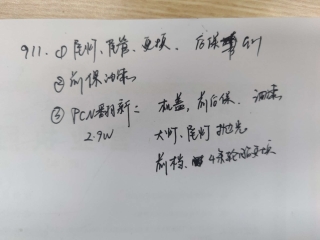 911. ① 尾灯、尾管、更换、后保
② 前保油漆
③ PCN翻新: 机盖, 前后保、油漆
2.9W 大灯、尾灯 抛光
前档、4条轮胎更换